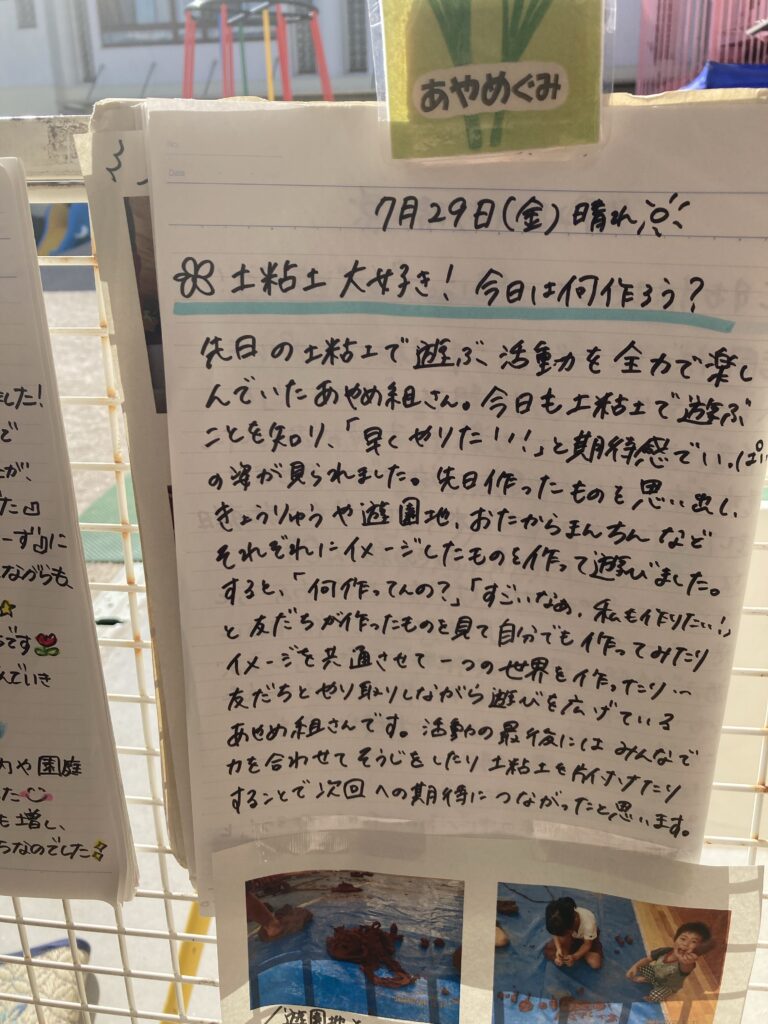 あやめぐみ
No.
Date
7月29日(金) 晴れ
土粘土 大好き! 今日は何作ろう?
先日の土粘土で遊ぶ活動を全力で楽し
んでいたあやめ組さん。今日も土粘土で遊ぶ
ことを知り、「早くやりたい!」と期待感でいっぱい
の姿が見られました。先日作ったものを思い出し、
きょうりゅうや遊園地、おたからまんちんなど
それぞれにイメージしたものを作って遊びました。
すると、「何作ってんの?」「すごいなぁ、私も作りたい!」
と友だちが作ったものを見て自分でも作ってみたり
イメージを共通させて一つの世界を作ったり…
友だちとやり取りしながら遊びを広げている
あやめ組さんです。活動の最後にはみんなで
力を合わせてそうじをしたり土粘土を片付けたり
することで次回への期待につながったと思います。
した!
で
が、
た』
ーず』に
ながらも
です
んでいき
内や園庭
した
も増し、
ちなのでした
遊園地